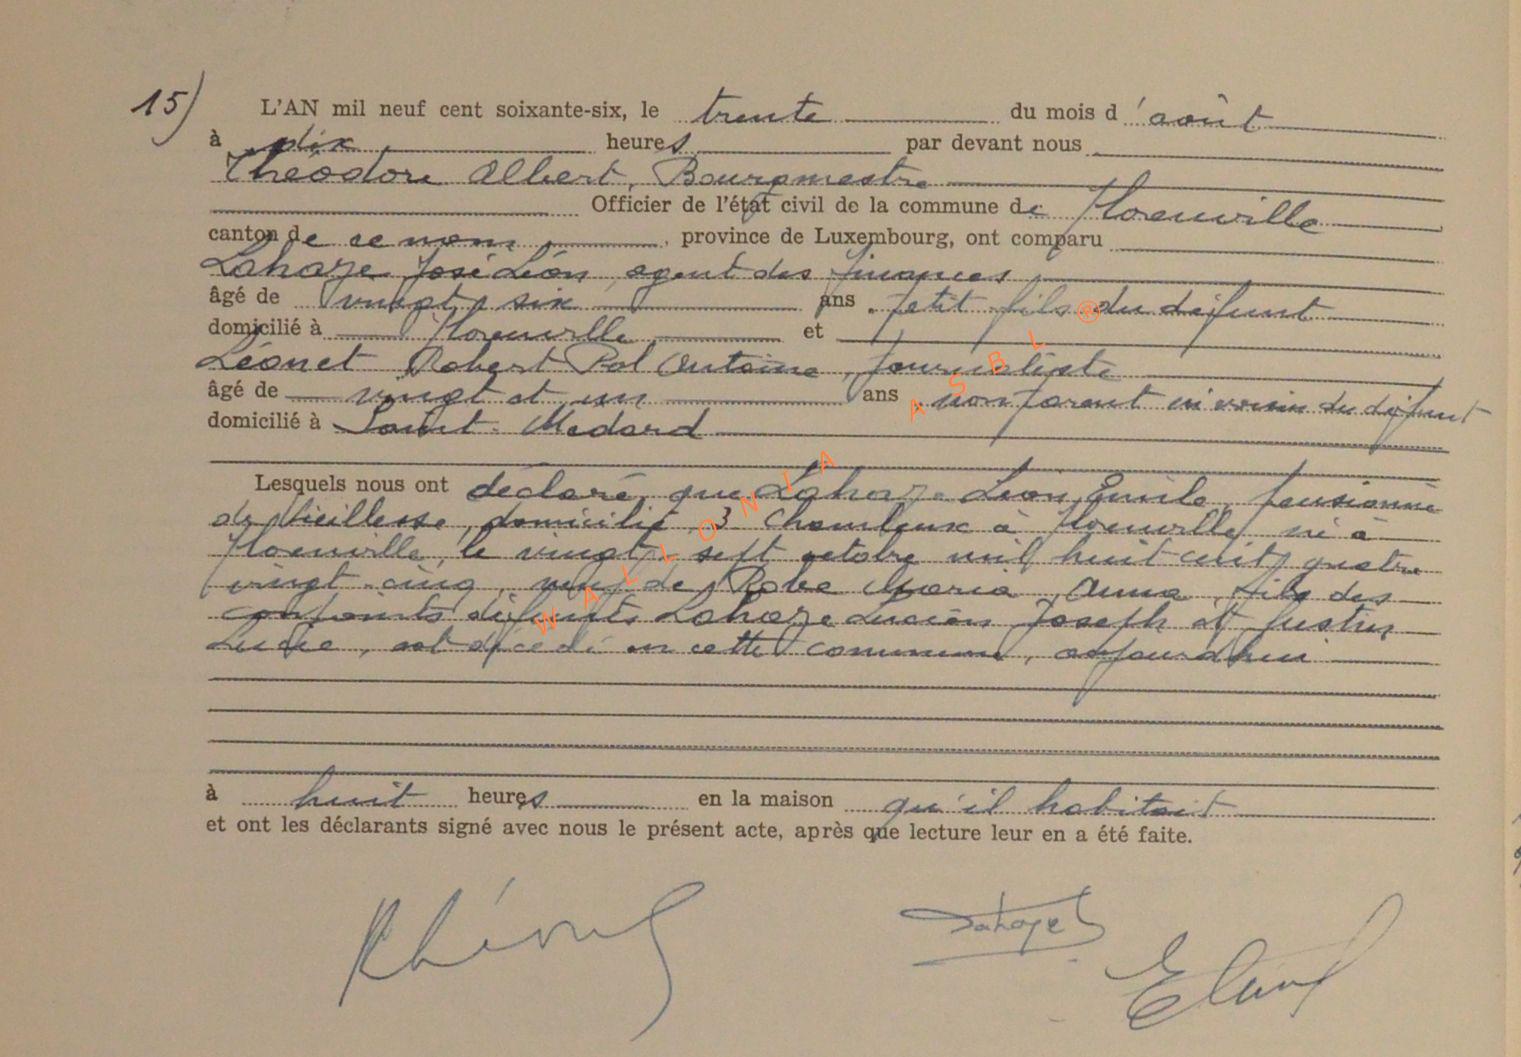 15)
L'AN mil neuf cent soixante-six, le trente du mois d'août
à dix heures par devant nous
Théodore Albert, Bourgmestre
Officier de l'état civil de la commune de Florenville
canton de ce nom, province de Luxembourg, ont comparu
Lahaze José Léon, agent des finances
âgé de vingt six ans, petit fils du défunt
domicilié à Florenville et
Léonet Robert Pol Antoine, journaliste
âgé de vingt et un ans, non parent ni voisin du défunt
domicilié à Saint-Médard
Lesquels nous ont déclaré, que Lahaze Léon Emile, pensionné
de vieillesse, domicilié 3 à Florenville né à
Florenville, le vingt sept octobre mil huit cent quatre
vingt cinq, veuf de Robe Maria Anna, fils des
conjoints défunts Lahaze Lucien Joseph et Justin
Lucie, est décédé en cette commune, aujourd'hui
à huit heures en la maison qu'il habitait
et ont les déclarants signé avec nous le présent acte, après que lecture leur en a été faite.
Lahaze
WALLONIA ASBL ®